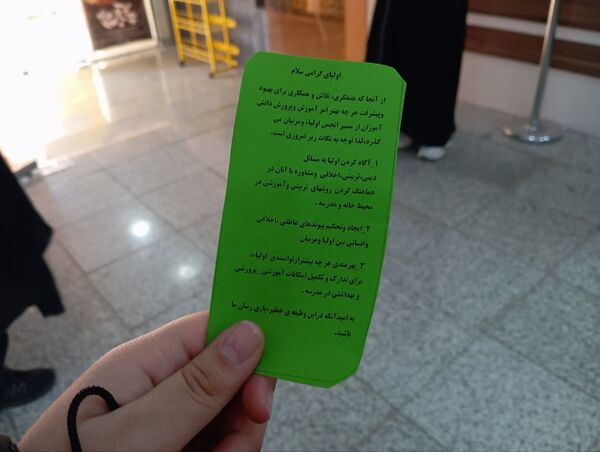 اولیای گرامی سلام
از آنجا که همفکری، تلاش و همکاری برای بهبود
وپیشرفت هر چه بهتر امر آموزش وپرورش دانش
آموزان از مسیر انجمن اولیاء ومربیان می
گذرد،لذا توجه به نکات زیر ضروری است.
۱_آگاه کردن اولیا به مسائل
دینی،تربیتی،اخلاقی ومشاوره با آنان در
هماهنگ کردن روشهای تربیتی وآموزشی در
محیط خانه و مدرسه .
۲_ایجاد وتحکیم پیوندهای عاطفی ،اخلاقی
وانسانی بین اولیا ومربیان
۳_بهرمندی هر چه بیشترازتوانمندی اولیاء،
برای تدارک و تکمیل امکانات آموزشی _پرورشی
و بهداشتی در مدرسه .
به امیدآنکه دراین وظیفه ی خطیر،یاری رسان ما
باشید.